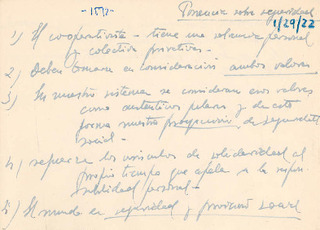 - 15 -
Ponencia sobre seguridad
1/29/22
1) El cooperativista - tiene una relevancia personal
y colectiva
2) Deben tomarse en consideración ambos valores
3) En nuestro sistema se consideran esos valores
como auténticos pilares y de esta
forma nuestra de seguridad
social -
4) refuerza los vínculos de solidaridad al
propio tiempo que apela a la respon-
sabilidad personal -
5) El mundo en seguridad y previsión social